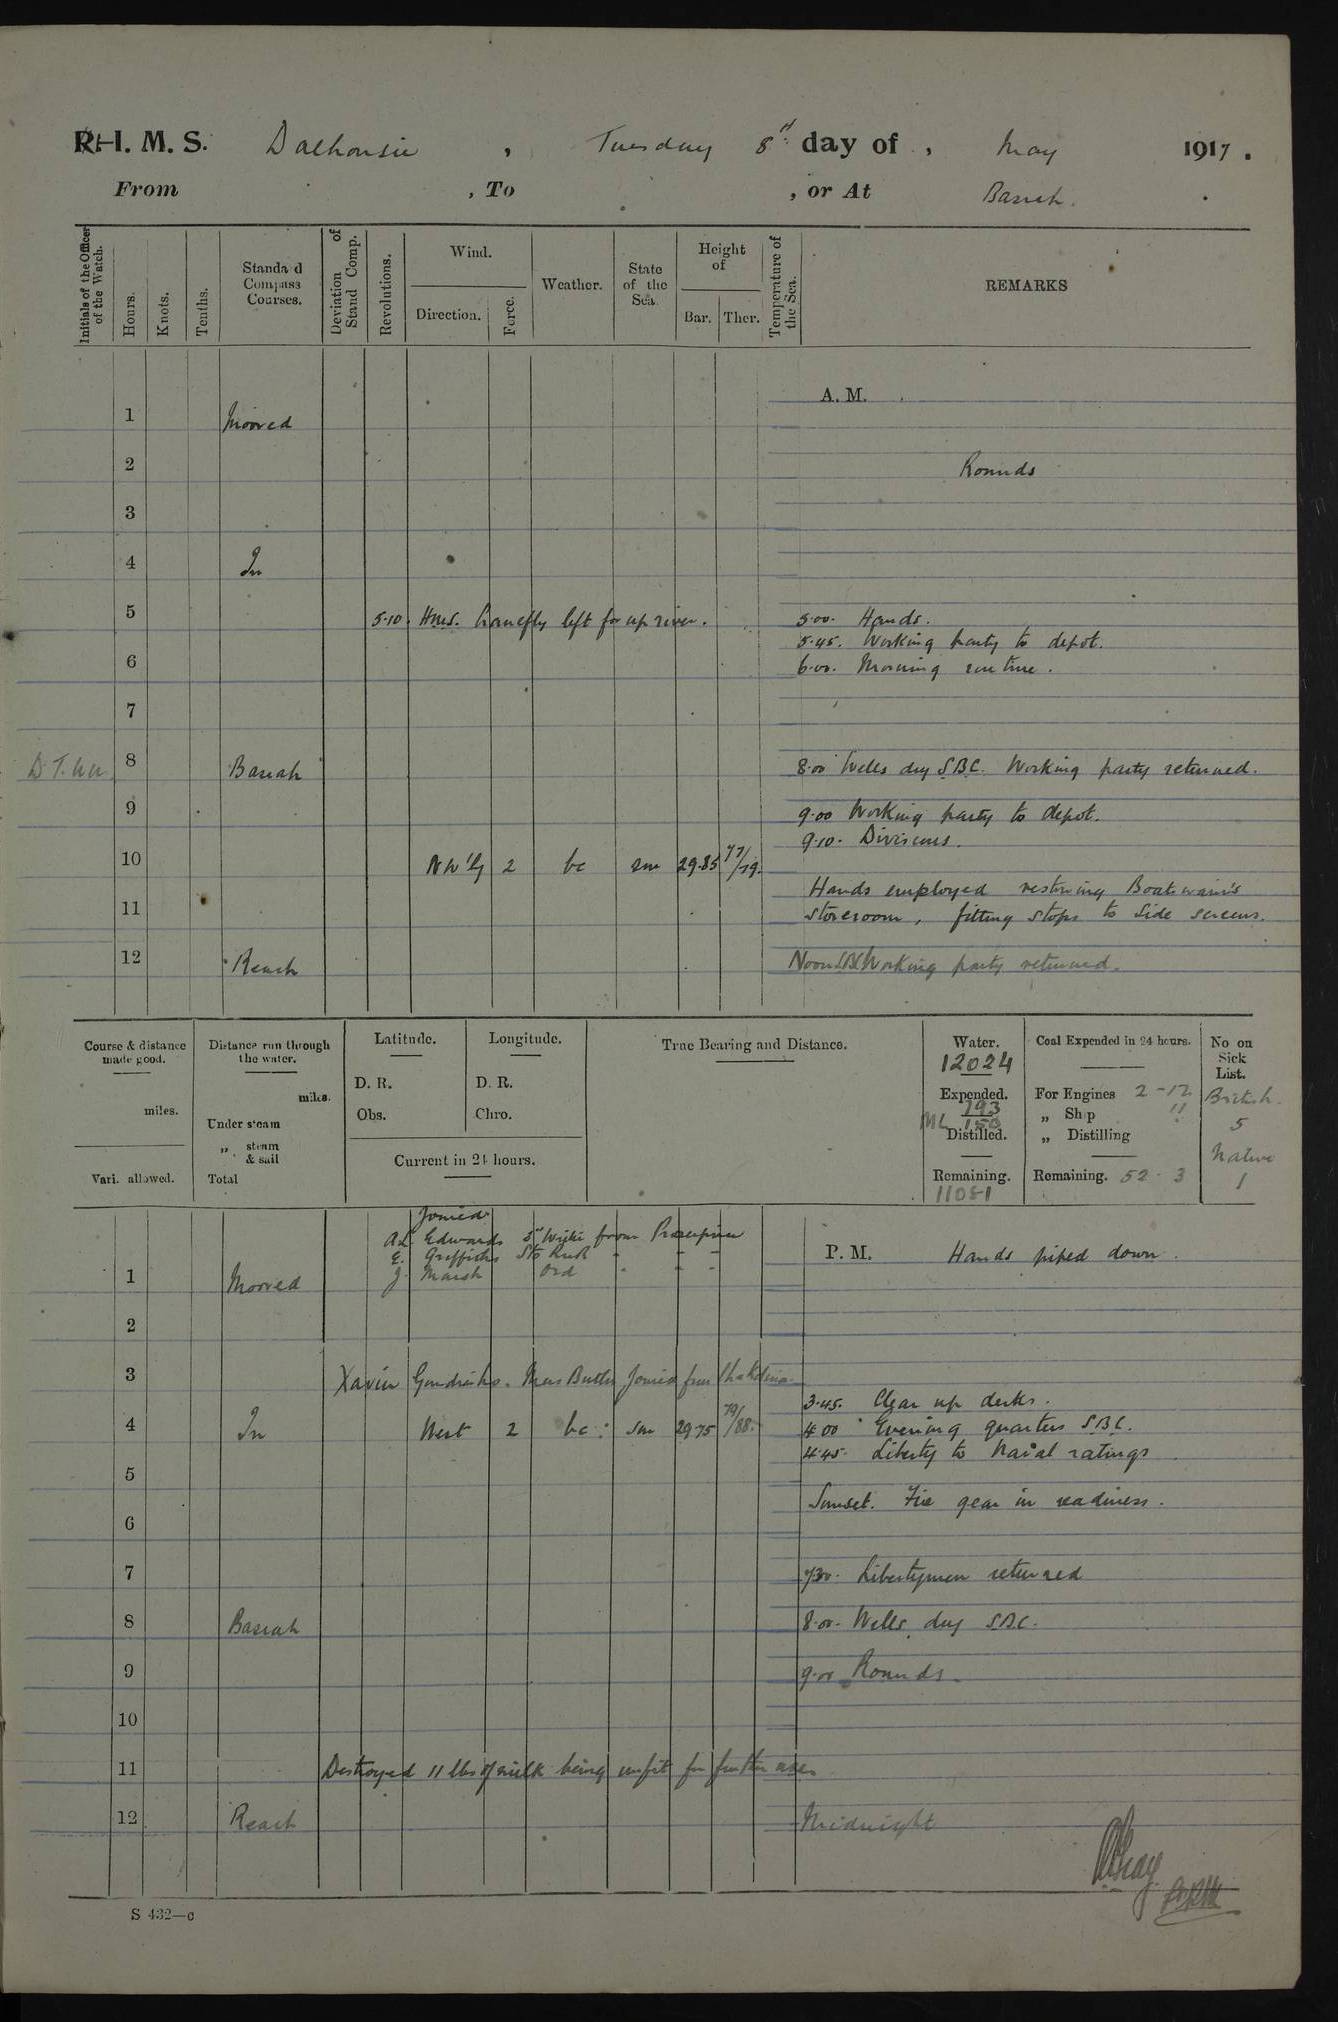 R.I.M.S. Dalhousie, Tuesday 8th day of, May 1917.
From , To , or At Basrah.
Initials of the Officer of the Watch.
Hours.
Knots.
Tenths.
Standard Compass Courses.
Deviation of Stand Comp.
Revolutions.
Wind.
Direction.
Force.
Weather.
State of the Sea
Height of
Bar.
Ther.
Temperature of the Sea.
REMARKS
A. M.
1 Moored
2 Rounds
3
4 In
5 5.10. H.M.S. Greenfly left for up river. 5.00. Hands.
5.45. Working party to depot.
6 6.00. Morning routine.
7
8 Basrah 8.00 Wells dry S.B.C. Working party returned.
9 9.00 Working party to depot.
9.10. Divisions.
10 NW'ly 2 bc sm 29.85 77/79.
Hands employed restowing Boatswain's
11 storeroom, fitting stops to side screens.
12 Reach Noon SBC Working party returned.
Course & distance made good.
miles.
Vari. allowed.
Distance run through the water.
miles.
Under steam
„ steam & sail
Total
Latitude.
D. R.
Obs.
Longitude.
D. R.
Chro.
Current in 24 hours.
True Bearing and Distance.
Water.
12024
Expended.
793
ML 150
Distilled.
Remaining.
11081
Coal Expended in 24 hours.
For Engines 2-12
„ Ship "
„ Distilling
Remaining. 52 . 3
No on Sick List.
British
5
Native
1
Joined
A.L. Edwards from Proserpine
E. Griffiths Sto RNR " " "
J. Marsh Ord " " "
P. M. Hands piped down.
1 Moored
2
3 Xavier Mess Butler Joined from
3.45. Clear up decks.
4 In West 2 bc: sm 29.75 79/88. 4.00 Evening quarters S.B.C.
4.45. Liberty to Naval ratings
5
Sunset. Fire gear in readiness.
6
7 7.30. Libertymen returned
8 Basrah 8.00. Wells dry S.B.C.
9 9.00 Rounds.
10
11 Destroyed 11 lbs of milk being unfit for further use.
12 Reach Midnight
S 432—c